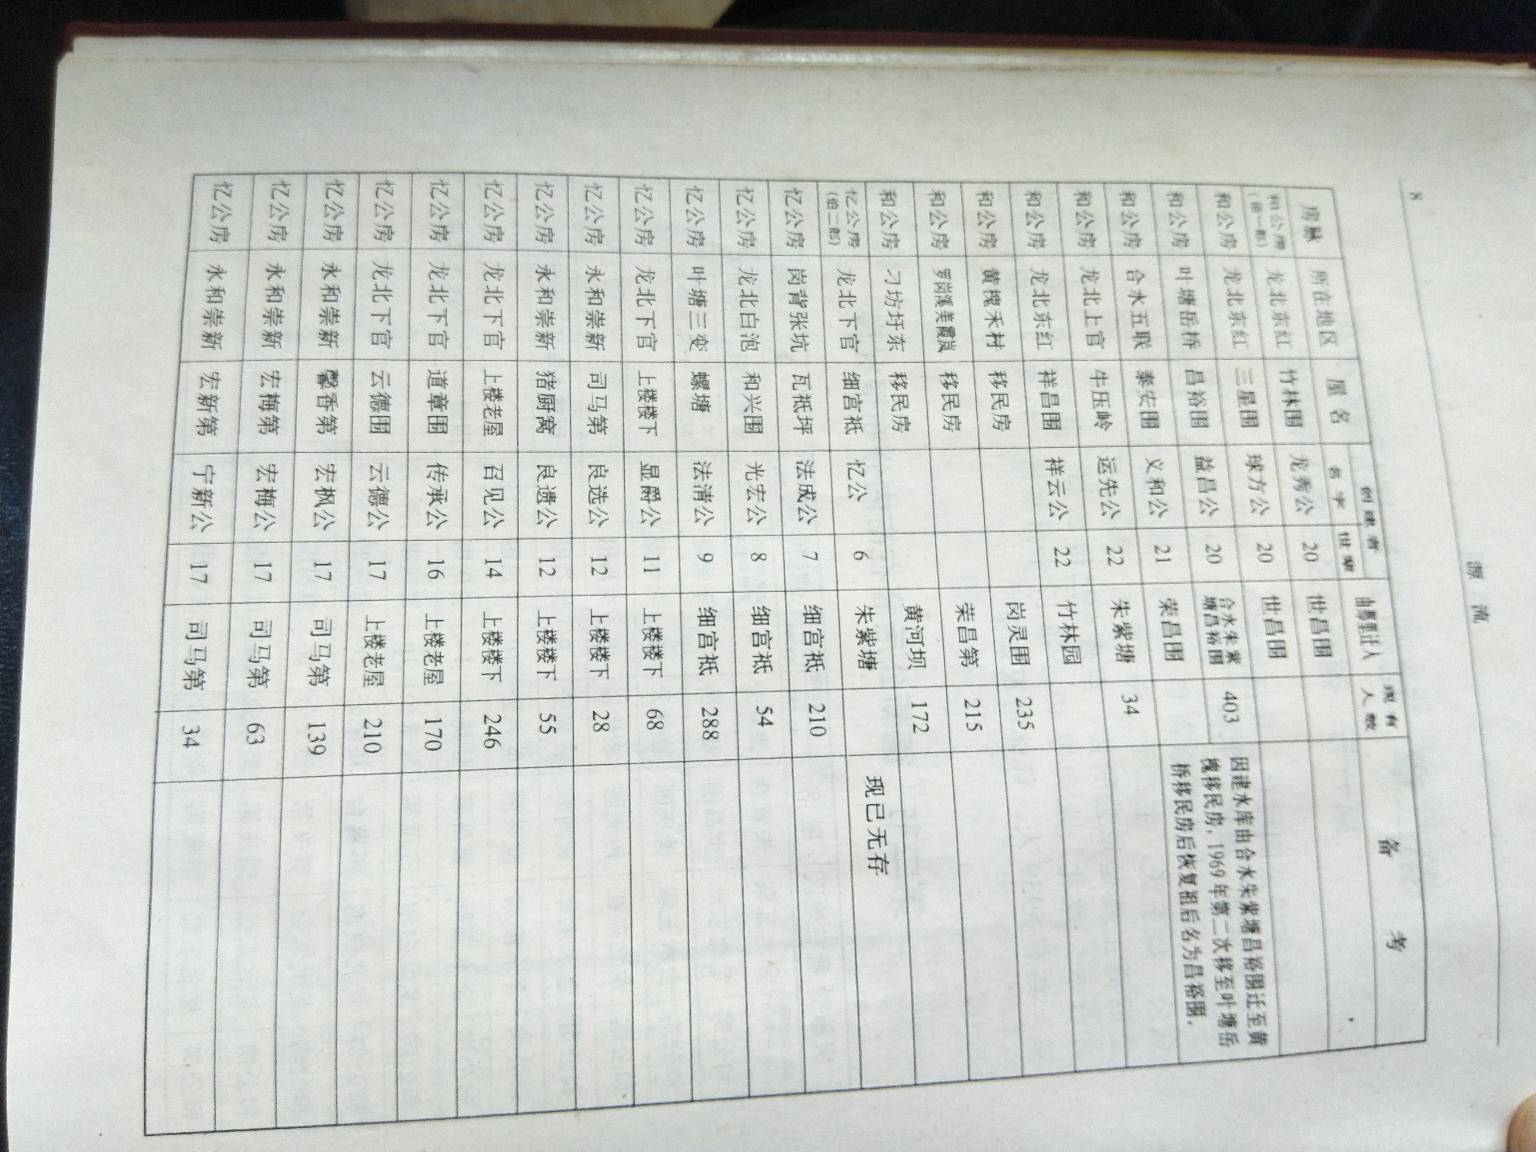 8
源 流
房脉 所在地区 屋名 创建者 名字 世辈 由哪里迁入 现有人数 备考
和公房 龙北东红 竹林围 龙秀公 20 世昌围
和公房 龙北东红 三星围 球方公 20 世昌围
和公房 叶塘岳桥 昌裕围 益昌公 20 合水朱紫塘昌裕围 403 因建水库由合水朱紫塘昌裕围迁至黄槐移民房，1969年第二次移至叶塘岳桥移民房后恢复祖后名为昌裕围。
和公房 合水五联 泰安围 义和公 21 荣昌围
和公房 龙北上官 牛压岭 运先公 22 朱紫塘 34
和公房 龙北东红 祥昌围 祥云公 22 竹林园
和公房 黄槐禾村 移民房 岗灵围 235
和公房 罗岗溪美霞岚 移民房 荣昌第 215
和公房 刁坊圩东 移民房 黄河坝 172
忆公房(伯二郎) 龙北下官 细宫祗 忆公 6 朱紫塘 现已无存
忆公房 岗背张坑 瓦祗坪 法成公 7 细宫祗 210
忆公房 龙北白泡 和兴围 光宏公 8 细宫祗 54
忆公房 叶塘三变 螺塘 法清公 9 细宫祗 288
忆公房 龙北下官 上楼楼下 显爵公 11 上楼楼下 68
忆公房 永和崇新 司马第 良选公 12 上楼楼下 28
忆公房 永和崇新 猪厨窝 良遗公 12 上楼楼下 55
忆公房 龙北下官 上楼老屋 召见公 14 上楼楼下 246
忆公房 龙北下官 道章围 传承公 16 上楼老屋 170
忆公房 龙北下官 云德围 云德公 17 上楼老屋 210
忆公房 永和崇新 馨香第 宏枫公 17 司马第 139
忆公房 永和崇新 宏梅第 宏梅公 17 司马第 63
忆公房 永和崇新 宏新第 宁新公 17 司马第 34